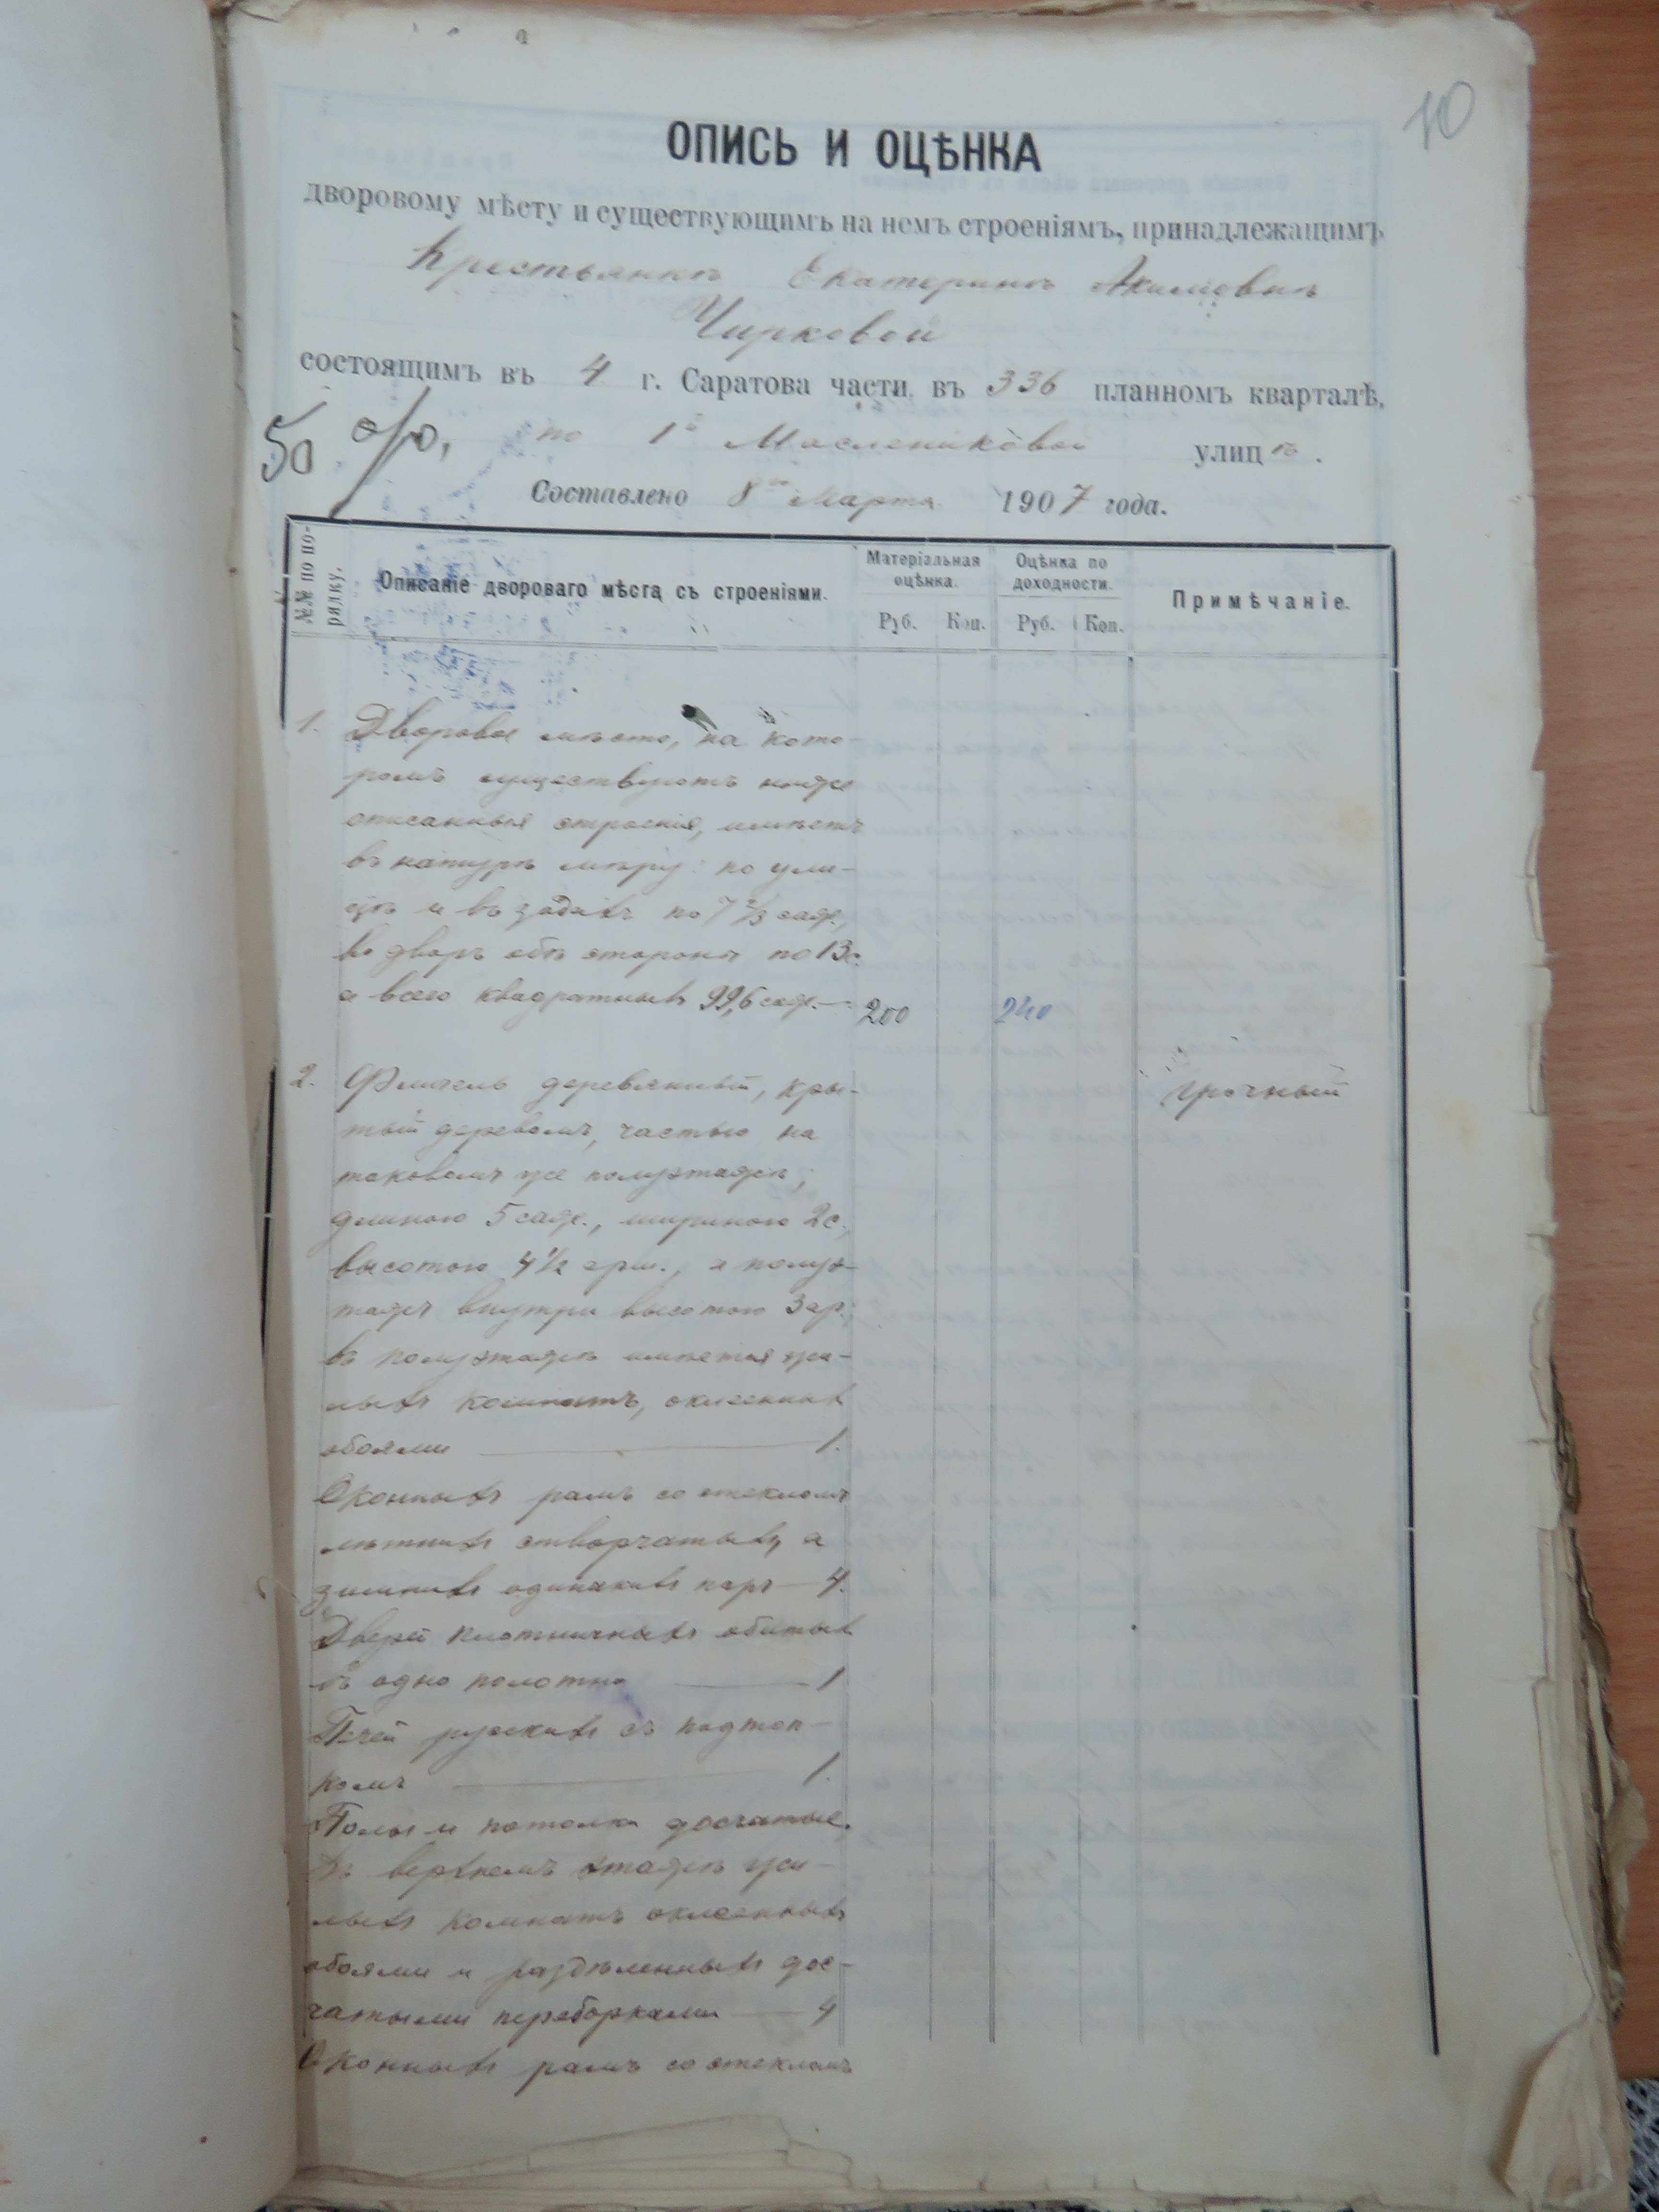 10
ОПИСЬ И ОЦѢНКА
дворовому мѣсту и существующимъ на немъ строеніямъ, принадлежащимъ
Крестьянкѣ Екатеринѣ Акимовнѣ
Чирковой
состоящимъ въ 4 г. Саратова части, въ 336 планномъ кварталѣ,
50 %, по 1й Маслениковой улицѣ.
Составлено 8го Марта 1907 года.
№№ по порядку. Описаніе двороваго мѣста съ строеніями. Матеріальная оцѣнка. Оцѣнка по доходности. Примѣчаніе.
Руб. Коп. Руб. Коп.
1. Дворовое мѣсто, на кото-
ромъ существуютъ ниже
описанныя строенія, имѣетъ
въ натурѣ мѣру: по ули-
цѣ и въ задахъ по 7 2/3 саж.,
во дворъ обѣ стороны по 13 с.
а всего квадратныхъ 99,6 саж. — 200 240
2. Флигель деревянный, кры-
тый деревомъ, частью на
таковомъ же полуэтажѣ;
длиною 5 саж., шириною 2 с.,
высотою 4 1/2 арш., а полуэ-
тажъ внутри высотою 3 ар.;
въ полуэтажѣ имѣется жи-
лыхъ комнатъ, оклеенныхъ
обоями — 1.
Оконныхъ рамъ со стекломъ
лѣтнихъ створчатыхъ, а
зимнихъ одинакихъ паръ — 4.
Дверей плотничныхъ обитыхъ
въ одно полотно — 1
Печей русскихъ съ подтоп-
комъ — 1.
Полы и потолки досчатые.
Въ верхнемъ этажѣ жи-
лыхъ комнатъ оклеенныхъ
обоями и раздѣленныхъ дос-
чатыми переборками — 4
Оконныхъ рамъ со стекломъ